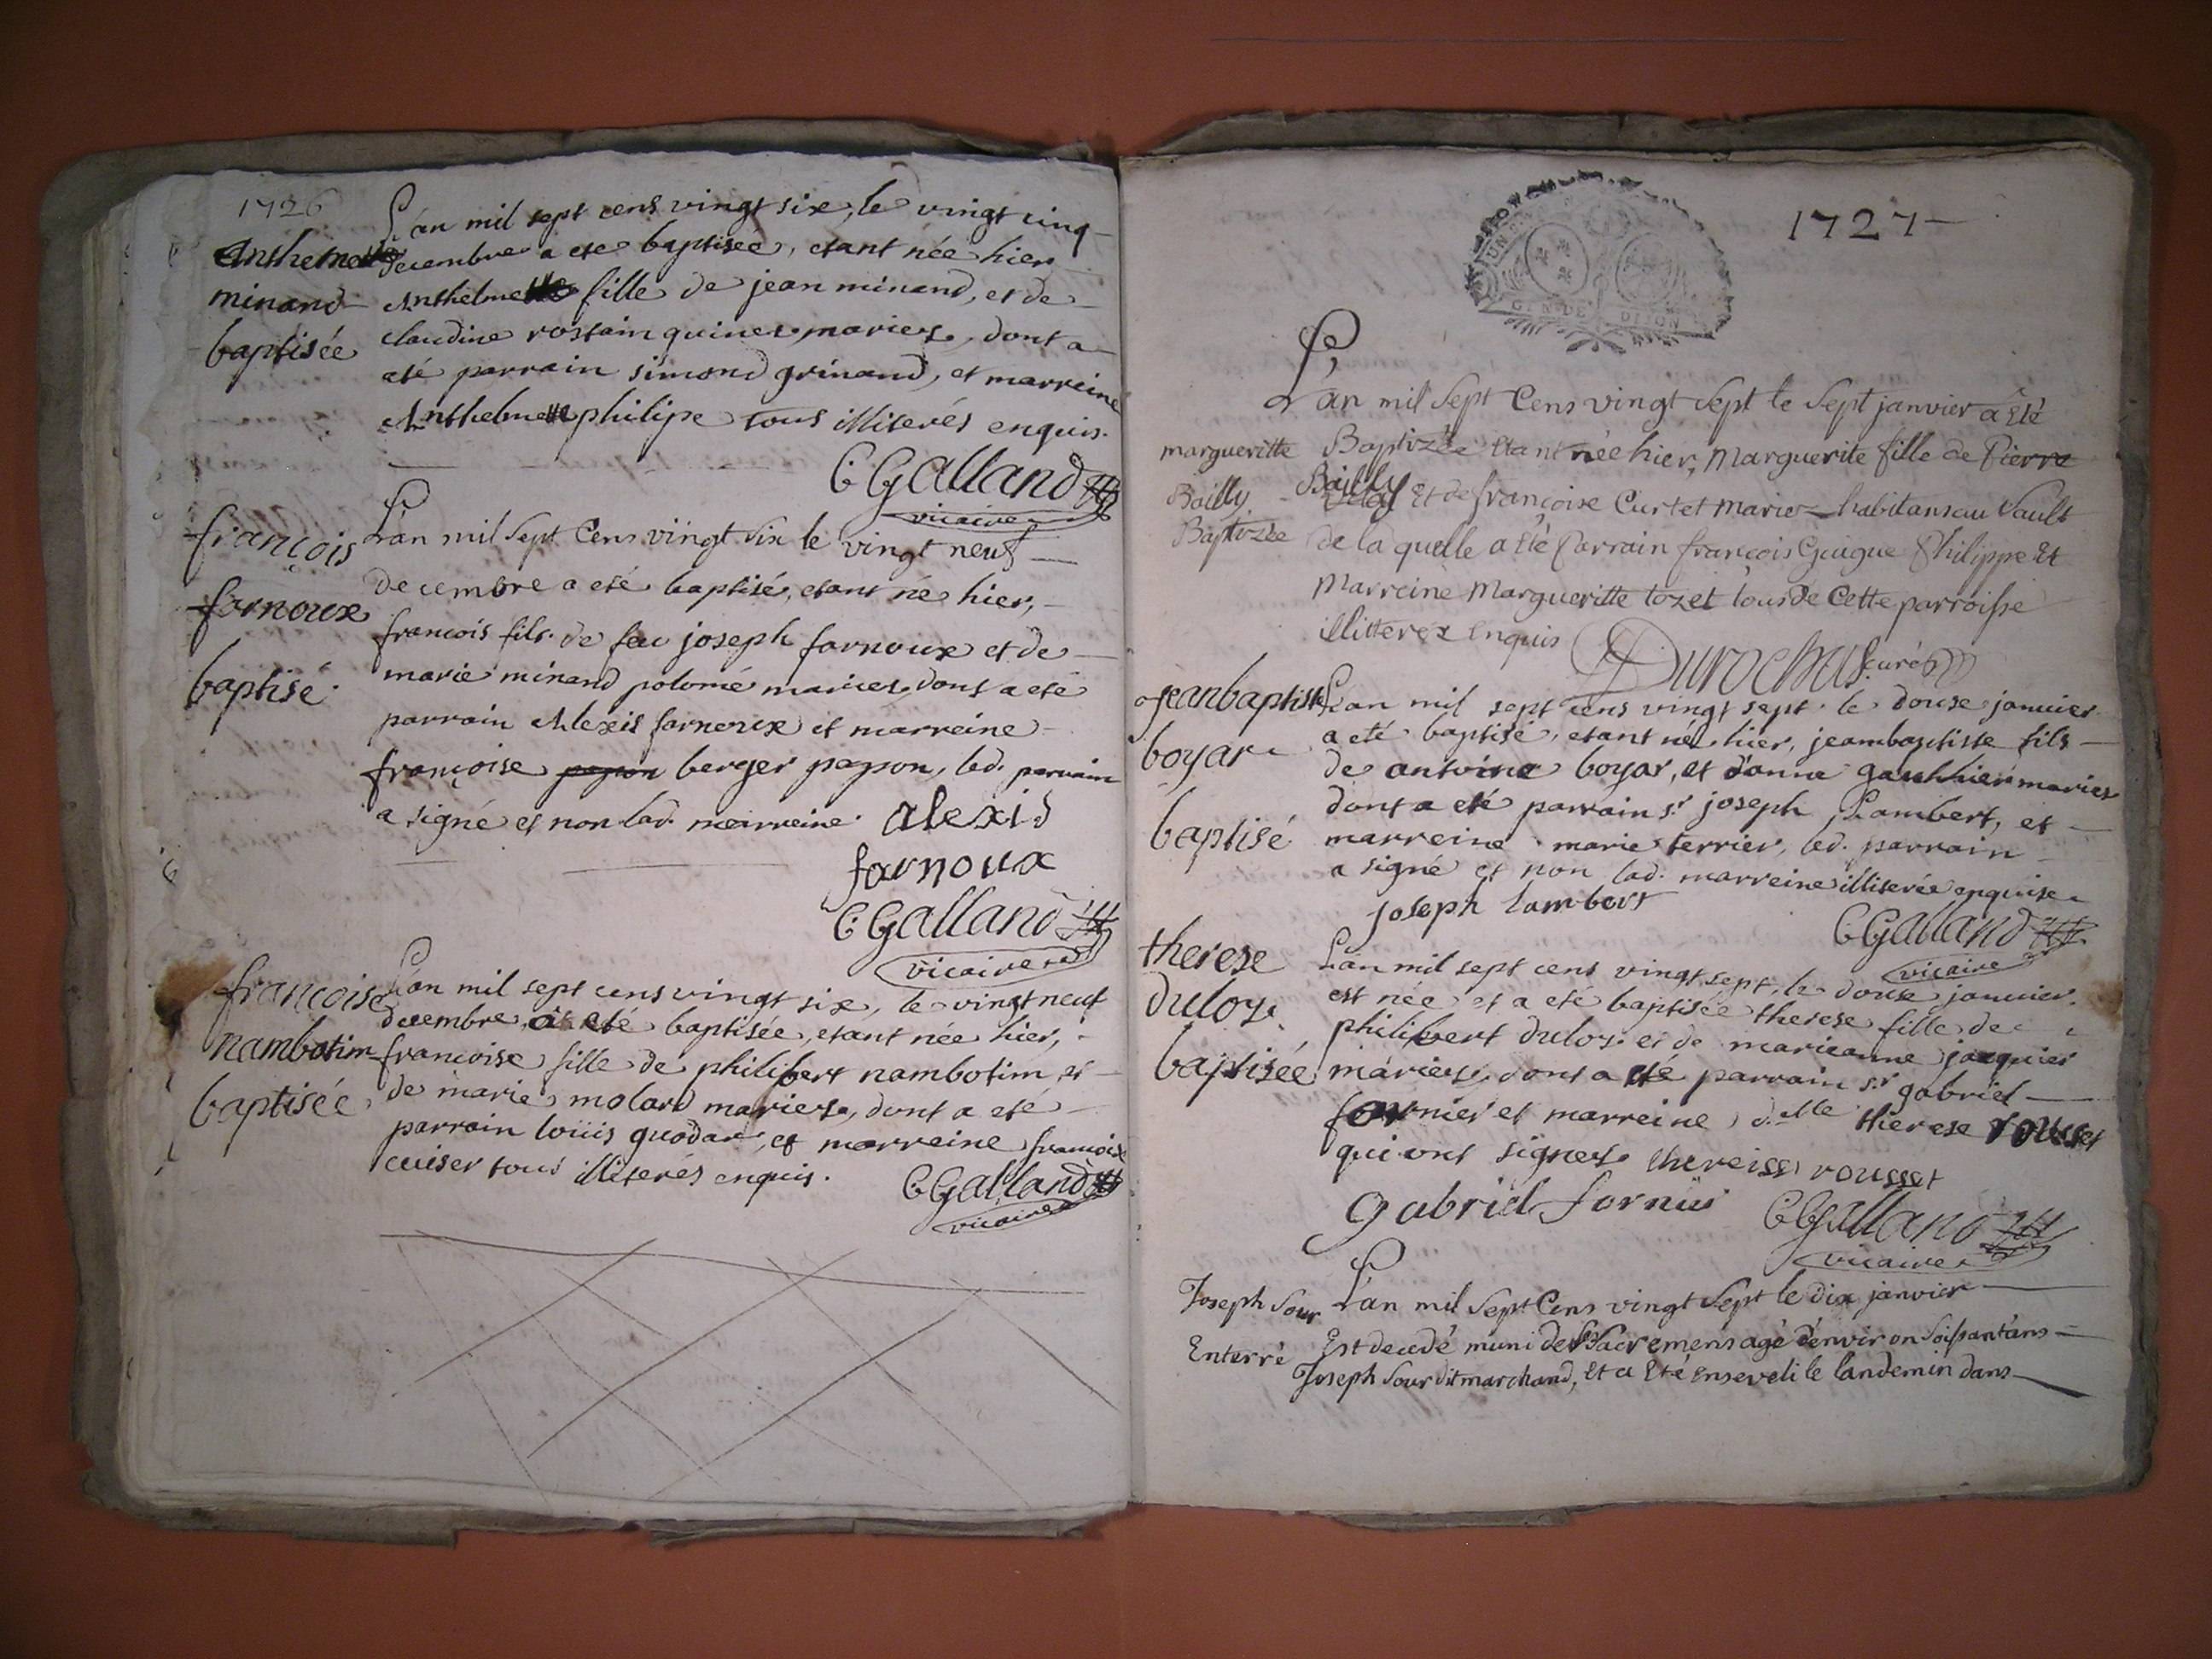 1726
Anthelmette
minand
baptisée
L'an mil sept cens vingt six, le vingt cinq
decembre a eté baptisée, etant née hier
Anthelmette fille de jean minand, et de
claudine rostain quines mariez, dont a
eté parrain simond grinand, et marreine
Anthelmette philipe tous illiterés enquis.
C Galland
vicaire
françois
farnoux
baptisé
L'an mil Sept Cens vingt Six le vingt neuf
decembre a eté baptisé, etant né hier,
francois fils de feu joseph farnoux et de
marie minand polomé mariez, dont a eté
parrain Alexis farnoux et marreine
françoise papon berger papon, led. parrain
a signé et non lad. marreine. alexis
farnoux
C Galland
vicaire
françoise
nambotim
baptisée
L'an mil sept cens vingt six, le vingt neuf
decembre, a eté baptisée, etant née hier,
francoise fille de philibert nambotim et
de marie molard mariez, dont a eté
parrain loüis quodar, et marreine francoise
cuiser tous illiterés enquis.
C Galland
vicaire
GEN. DE DIJON
1727
L'an mil Sept Cens vingt Sept le Sept janvier a Eté
margueritte
Bailly
Baptizée
Baptizée Etant née hier, Marguerite fille de Pierre
Bailly Et de françoise Curtet mariez habitans au Vault
de la quelle a Eté Parrain françois Guigue Philippe Et
Marreine Margueritte tozet tous de Cette parroisse
illitterez Enquis Durochat curé
jeanbaptiste
boyar
baptisé
L'an mil sept cens vingt sept le douse janvier
a eté baptisé, etant né hier, jeambaptiste fils
de antoine boyar, et d'anne gauthier mariez
dont a eté parrain sr. joseph Lambert, et
marreine marie terrier, led. parrain
a signé et non lad. marreine illiterée enquise
joseph lambert
C Galland
vicaire
therese
duloy
baptisée
L'an mil sept cens vingt sept, le douse janvier
est née et a eté baptisée therese fille de
philibert duloy et de marieanne jacquier
mariez, dont a eté parrain sr. gabriel
fornier et marreine d.elle therese rousset
qui ont signez thereise rousset
gabriel fornier
C Galland
vicaire
Joseph Sour
Enterré
L'an mil Sept Cens vingt Sept le dix janvier
Est decedé muni des Sacremens agé d'environ Soissant'ans
Joseph Sour dit marchand, Et a Eté Enseveli le landemin dans